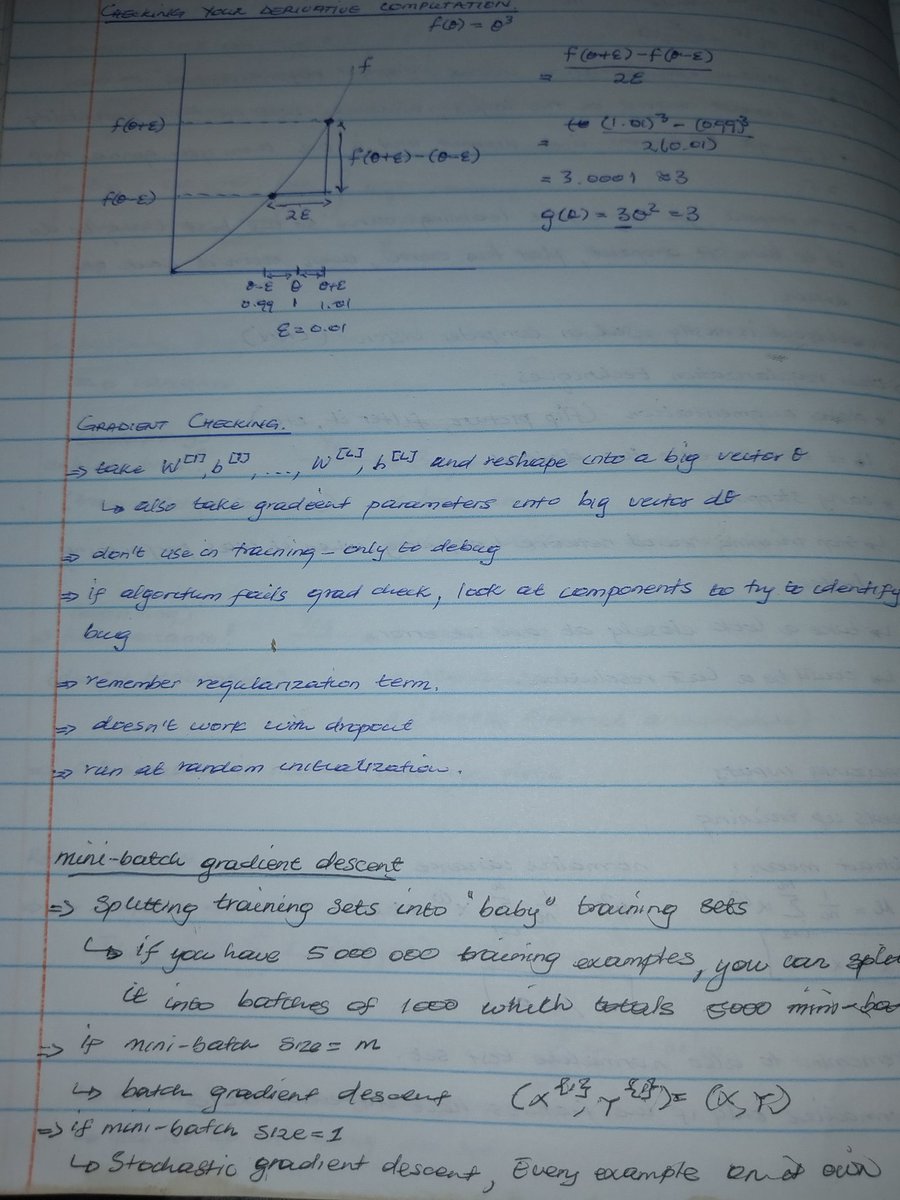 CHECKING YOUR DERIVATIVE COMPUTATION.
f(θ) = θ³
f
f(θ+ε)
f(θ-ε)
f(θ+ε)-(θ-ε)
2ε
θ-ε θ θ+ε
0.99 1 1.01
ε=0.01
= f(θ+ε)-f(θ-ε) / 2ε
= (1.01)³ - (0.99)³ / 2(0.01)
= 3.0001 ≈3
g(θ) = 3θ² = 3
GRADIENT CHECKING.
⇒ take W[1], b[1], ..., W[L], b[L] and reshape into a big vector θ
↳ also take gradient parameters into big vector dθ
⇒ don't use in training - only to debug
⇒ if algorithm fails grad check, look at components to try to identify
bug
⇒ remember regularization term.
⇒ doesn't work with dropout
⇒ run at random initialization.
mini-batch gradient descent
⇒ splitting training sets into "baby" training sets
↳ if you have 5 000 000 training examples, you can
it into batches of 1000 which totals 5000
⇒ if mini-batch size = m
↳ batch gradient descent (X{1}, Y{1}) = (X, Y)
⇒ if mini-batch size = 1
↳ Stochastic gradient descent, Every example own